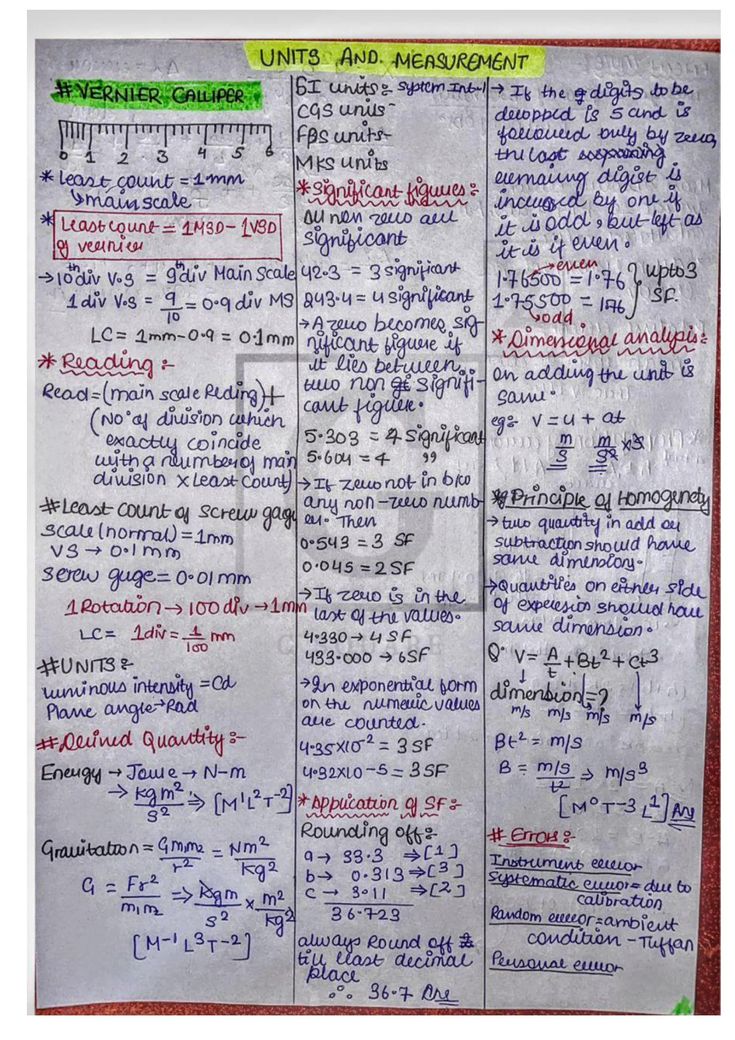 UNITS AND. MEASUREMENT
# VERNIER CALLIPER
0 1 2 3 4 5 6
* Least count = 1mm
↳ main scale
* Least count = 1MSD - 1VSD
of vernier
→ 10th div V.S = 9th div Main Scale
1 div V.S = 9/10 = 0.9 div MS
LC = 1mm - 0.9 = 0.1mm
* Reading :-
Read = (main scale Reding) +
(No° of division which
exactly coincide
with a number of main
division x Least Count)
# Least count of screw gage
scale (normal) = 1mm
VS → 0.1 mm
screw guge = 0.01 mm
1 Rotation → 100 div → 1mm
LC = 1 div = 1/100 mm
# UNITS :-
luminous intensity = Cd
Plane angle → Rad
# Derived Quantity :-
Energy → Joule → N-m
→ kg m²/s² ⇒ [M¹L²T⁻²]
Gravitation = Gm₁m₂/r² = Nm²/kg²
G = Fr²/m₁m₂ ⇒ kgm/s² x m²/kg²
[M⁻¹L³T⁻²]
SI units :- System Int-l
CGS units -
FPS units -
MKS units
* Significant figures :-
All non zero are
significant
42.3 = 3 significant
243.4 = 4 significant
→ A zero becomes sig-
nificant figure if
it lies between
two non signifi-
cant figure.
5.303 = 4 significant
5.604 = 4 ,,
→ If zero not in b/w
any non-zero numb-
er. Then
0.543 = 3 SF
0.045 = 2SF
→ If zero is in the
last of the values.
4.330 → 4 SF
433.000 → 6SF
→ In exponential form
on the numeric values
are counted.
4.35x10⁻² = 3 SF
4.32x10-5 = 3 SF
* Application of SF :-
Rounding off :-
a → 33.3 ⇒ [1]
b → 0.313 ⇒ [3]
c → 3.11 ⇒ [2]
36.723
always Round off
till least decimal
place
∴ 36.7 Ans
→ If the digits to be
dropped is 5 and is
followed only by zero,
the last
remaing digist is
incresed by one if
it is odd, but left as
it is if even.
1.76500 → even = 1.76 } upto 3
1.75500 = 1.76 } SF.
↳ odd
* Dimensional analysis :-
On adding the unit is
same.
eg:- v = u + at
m/s m/s² x s
* Principle of Homogenety
→ two quantity in add or
subtraction should have
same dimensiory.
→ Quantities on either side
of expression should have
same dimension.
Q. V = A/t + Bt² + Ct³
dimension = ?
m/s m/s m/s m/s
Bt² = m/s
B = m/s/t² ⇒ m/s³
[M⁰T⁻³L¹] Ans
# Errors :-
Instrument error
Systematic error = due to
calibration
Random error = ambient
condition - Tuffan
Personal error